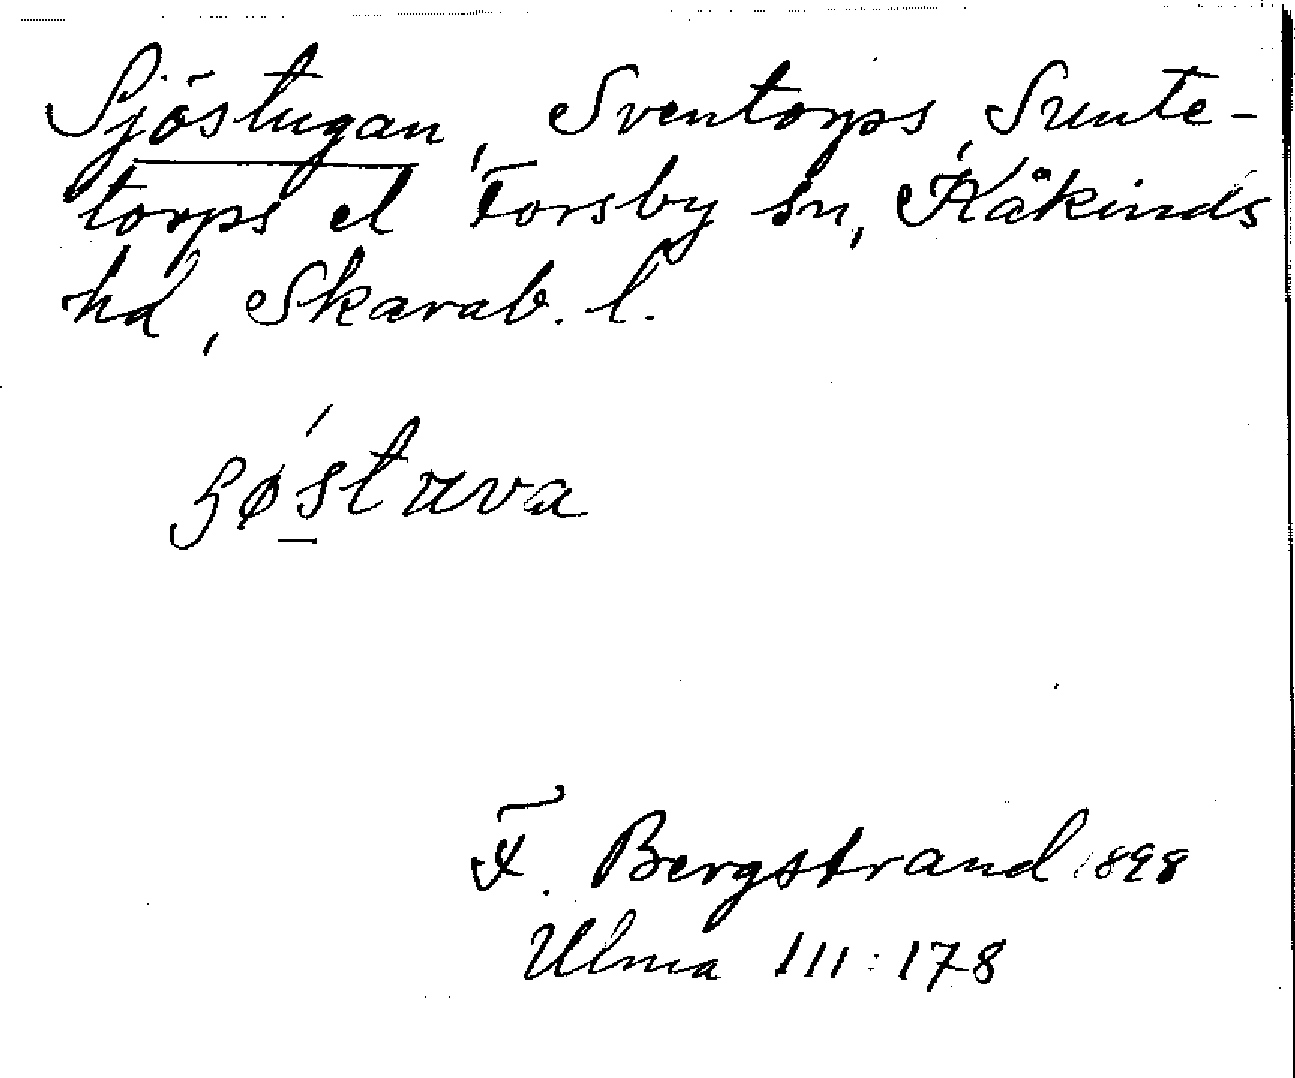 Sjöstugan, Sventorps, Sunte-
torps el Forsby sn, Kåkinds
hd, Skarab. l.
F. Bergstrand 1898
Ulma III:178